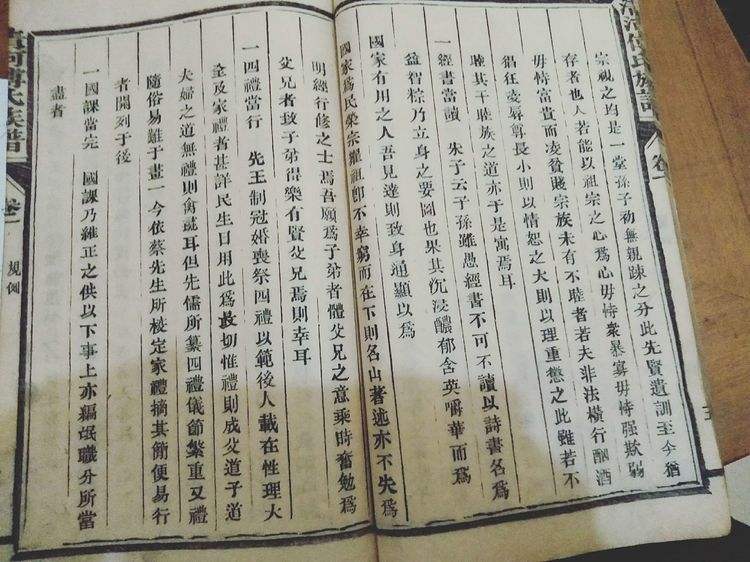 宗視之均是一堂孫子初無親踈之分此先賢遺訓至今猶
存者也人若能以祖宗之心爲心毋恃衆暴寡毋恃强欺弱
毋恃富貴而凌貧賤宗族未有不睦者若夫非法橫行酗酒
猖狂菱辱尊長小則以情恕之大則以理重懲之此雖若不
睦其于睦族之道亦于是寓焉耳
一經書當讀　朱子云子孫雖愚經書不可不讀以詩書名爲
益智粽乃立身之要圖也果其沉浸醲郁含英嚼華而爲
國家有用之人吾見達則致身通顯以爲
國家爲民榮宗耀祖卽不幸窮而在下則名山著述亦不失爲
明經行修之士焉吾願爲子弟者體父兄之意乘時奮勉爲
父兄者敎子弟得樂有賢父兄焉則幸耳
一四禮當行　先王制冠婚喪祭四禮以範後人載在性理大
全及家禮者甚詳民生日用此爲最切惟禮則成父道子道
夫婦之道無禮則禽彘耳但先儒所纂四禮儀節繁重又禮
隨俗易難于畫一今依蔡先生所校定家禮摘其簡便易行
者開列于後
一國課當完　國課乃維正之供以下事上亦編氓職分所當
盡者
氏族譜 卷一 規例